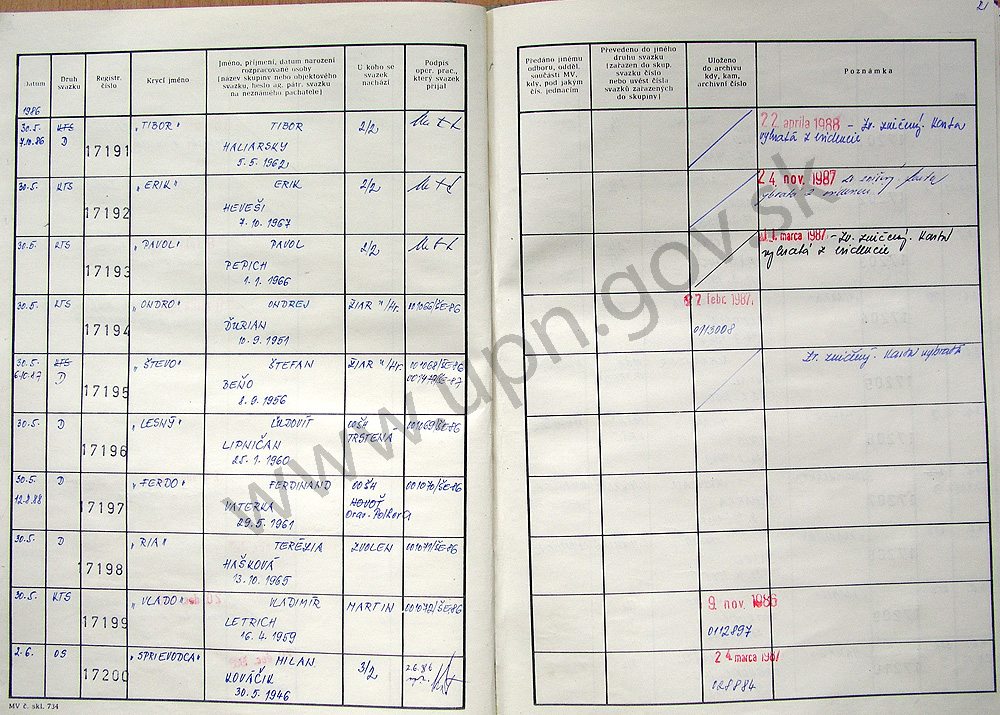 21
Datum
Druh svazku
Registr. číslo
Krycí jméno
Jméno, příjmení, datum narození
rozpracované osoby
(název skupiny nebo objektového
svazku, heslo ag. pátr. svazku
na neznámého pachatele)
U koho se
svazek
nachází
Podpis
oper. prac.,
který svazek
přijal
Předáno jinému
odboru, odděl.
součásti MV,
kdy, pod jakým
čís. jednacím
Převedeno do jiného
druhu svazku
(zařazen do skup.
svazku číslo
nebo uvést čísla
svazků zařazených
do skupiny)
Uloženo
do archivu
kdy, kam,
archivní číslo
Poznámka
1986
30.5. KTS 17191 "TIBOR" TIBOR 2/2
7.10.86 D
HALIARSKY
5.5.1962
22 aprila 1988 - Zv. zničený. Karta
vybratá z evidencie
30.5. KTS 17192 "ERIK" ERIK 2/2
HEVEŠI
7.10.1967
24. nov. 1987 Zv. zničený karta
vybratá z evidencie
30.5. KTS 17193 "PAVOL" PAVOL 2/2
PEPICH
1.1.1966
marca 1987 - Zv. zničený. Karta
vybratá z evidencie
30.5. KTS 17194 "ONDRO" ONDREJ ŽIAR n/Hr. 001066/ŠE-86
ĎURIAN
10.9.1951
febr. 1987.
0113008
30.5. KTS 17195 "ŠTEVO" ŠTEFAN ŽIAR n/Hr. 001068/ŠE-86
6.10.87 D
BEŇO
8.9.1956
Zv. zničený. Karta vybratá
30.5. D 17196 "LESNÝ" ĽUDOVÍT OOŠ4 001069/ŠE-86
TRSTENÁ
LIPNIČAN
25.1.1960
30.5. D 17197 "FERDO" FERDINAND OOŠ4 001070/ŠE-86
12.8.88
VATERKA
NOVOŤ
Orav. Polhora
29.5.1961
30.5. D 17198 "RIA" TERÉZIA ZVOLEN 001071/ŠE-86
HAŠKOVÁ
13.10.1965
30.5. KTS 17199 "VLADO" VLADIMÍR MARTIN 001072/ŠE-86
LETRICH
16.4.1959
9. nov. 1986
0112897
2.6. OS 17200 "SPRIEVODCA" MILAN 3/2 2.6.86
KOVÁČIK
30.5.1946
24 marca 1987
028884
MV č. skl. 734
www.upn.gov.sk